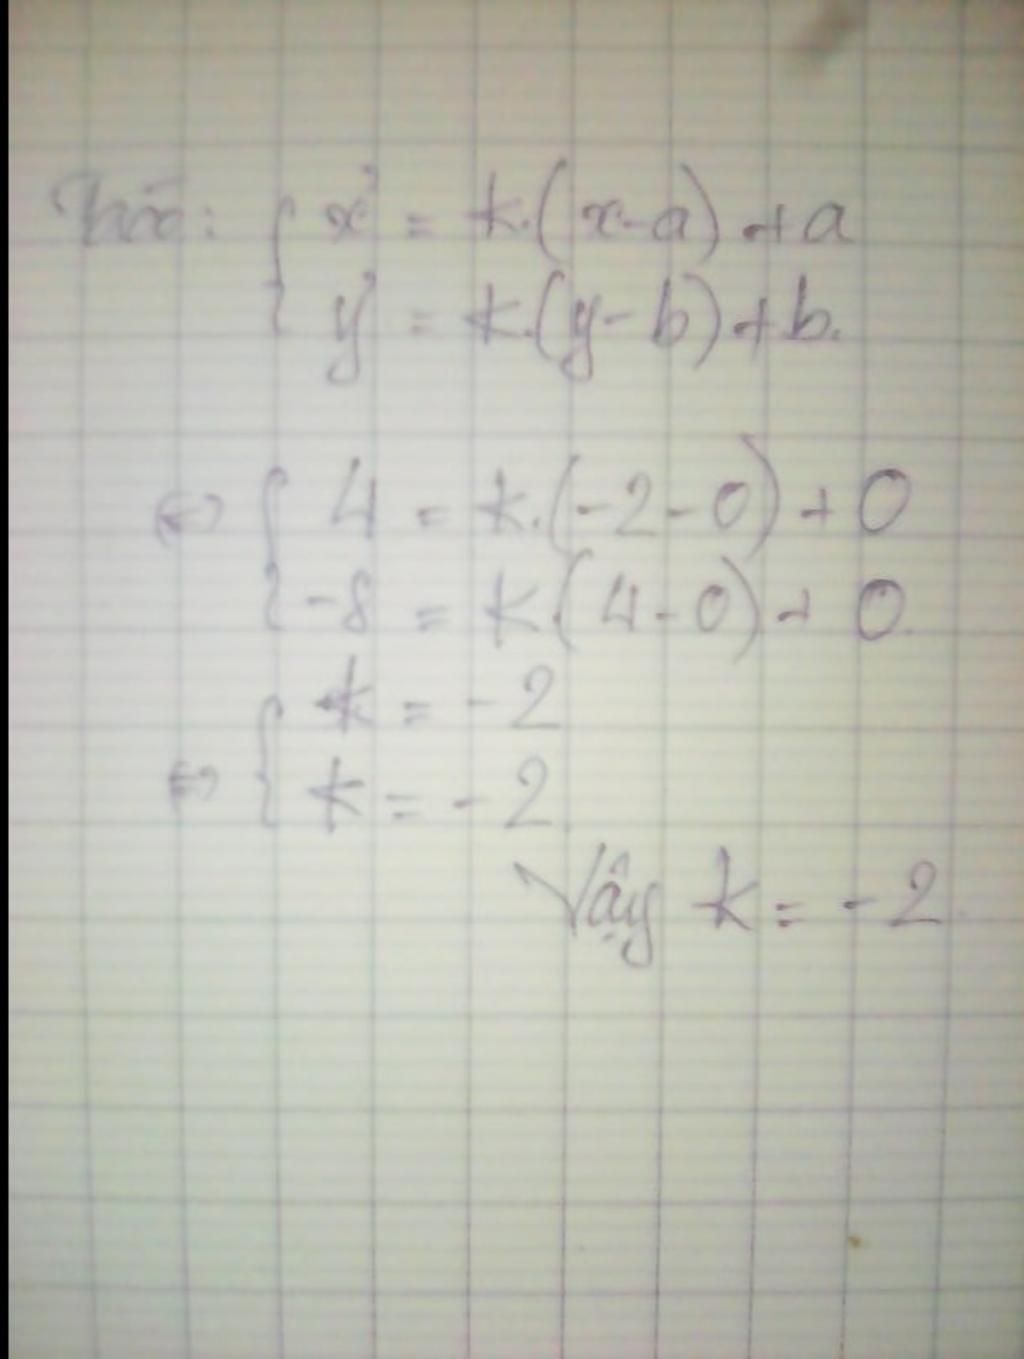 { x' = k.(x-a)+a
{ y' = k.(y-b)+b.
<=> { 4 = k.(-2-0)+0
{ -8 = k.(4-0)+0.
{ k = -2
<=> { k = -2
Vậy k = -2.